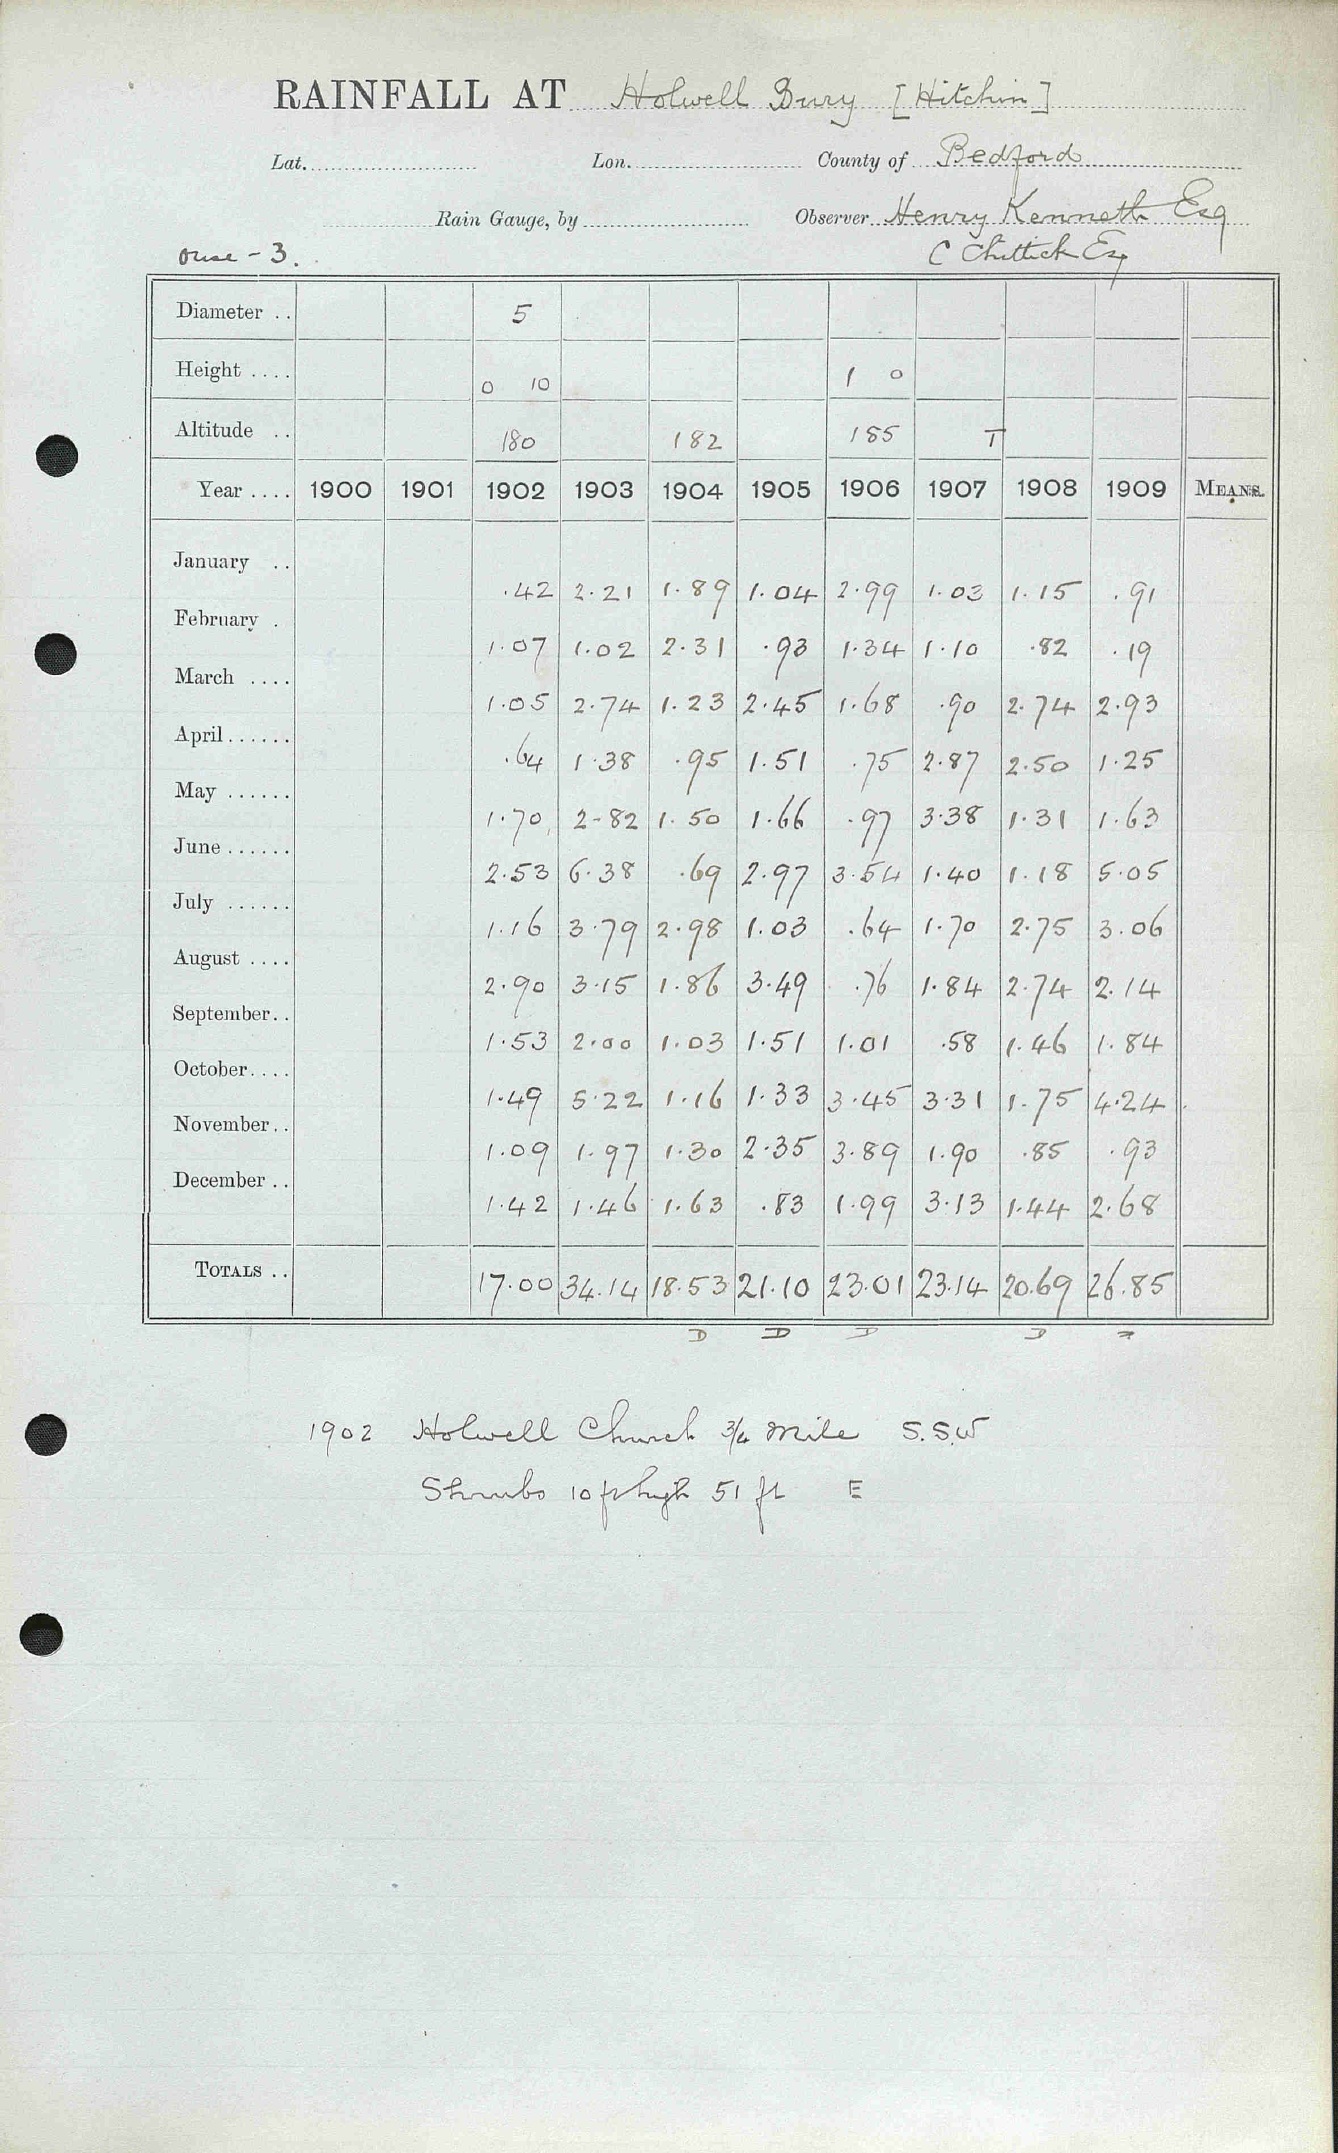 RAINFALL AT Holwell Bury [Hitchin]
Lat. Lon. County of Bedford
Rain Gauge, by Observer Henry Kenneth Esq
Ouse - 3. C Chittick Esq
Diameter .. 5
Height .... 0 10 1 0
Altitude .. 180 182 185 T
Year .... 1900 1901 1902 1903 1904 1905 1906 1907 1908 1909 MEANS.
January .. .42 2.21 1.89 1.04 2.99 1.03 1.15 .91
February . 1.07 1.02 2.31 .93 1.34 1.10 .82 .19
March .... 1.05 2.74 1.23 2.45 1.68 .90 2.74 2.93
April ...... .64 1.38 .95 1.51 .75 2.87 2.50 1.25
May ...... 1.70 2.82 1.50 1.66 .97 3.38 1.31 1.63
June ...... 2.53 6.38 .69 2.97 3.54 1.40 1.18 5.05
July ...... 1.16 3.79 2.98 1.03 .64 1.70 2.75 3.06
August .... 2.90 3.15 1.86 3.49 .76 1.84 2.74 2.14
September .. 1.53 2.00 1.03 1.51 1.01 .58 1.46 1.84
October .... 1.49 5.22 1.16 1.33 3.45 3.31 1.75 4.24
November .. 1.09 1.97 1.30 2.35 3.89 1.90 .85 .93
December .. 1.42 1.46 1.63 .83 1.99 3.13 1.44 2.68
TOTALS .. 17.00 34.14 18.53 21.10 23.01 23.14 20.69 26.85
D D D D
1902 Holwell Church 3/4 mile S.S.W
Shrubs 10 ft high 51 ft E